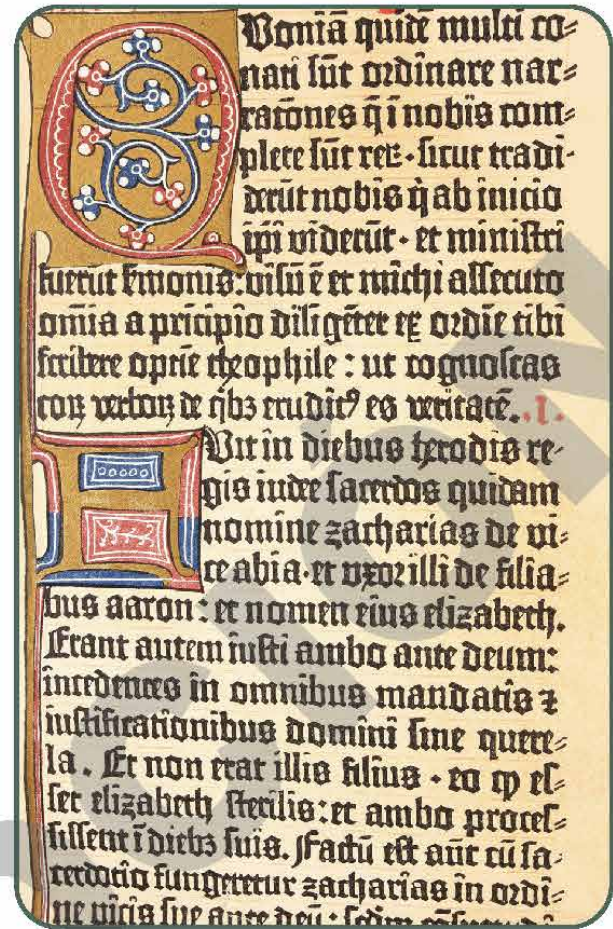 Quoniā quidē multi co-
nati sūt ordinare nar-
ratōnes q̄ ī nobis com-
plete sūt reꝝ · sicut tradi-
derūt nobis q̄ ab inicio
ip̄i viderūt · et ministri
fuerūt s̄monis: visū ē et michi assecuto
om̄ia a prīcipio diligēter ex ordīe tibi
scribere optīe theophile : ut cognoscas
eoꝝ verboꝝ de q̄bꝫ erudit⁹ es veritatē. .I.
Fuit in diebus herodis re-
gis iudee sacerdos quidam
nomine zacharias de vi-
ce abia · et uxor illi de filia-
bus aaron : et nomen eius elizabeth.
Erant autem iusti ambo ante deum:
incedentes in omnibus mandatis ⁊
iustificationibus domini sine quere-
la . Et non erat illis filius · eo ꝙ es-
set elizabeth sterilis : et ambo proces-
sissent ī diebꝫ suis. Factū est aūt cū sa-
cerdotio fungeretur zacharias in ordi-
ne vicis sue ante deū :